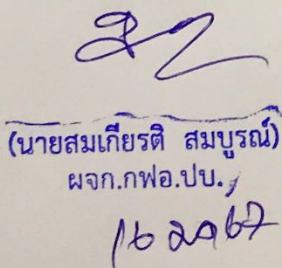 (นายสมเกียรติ สมบูรณ์)
ผจก.กฟอ.ปบ.
16 มค 67